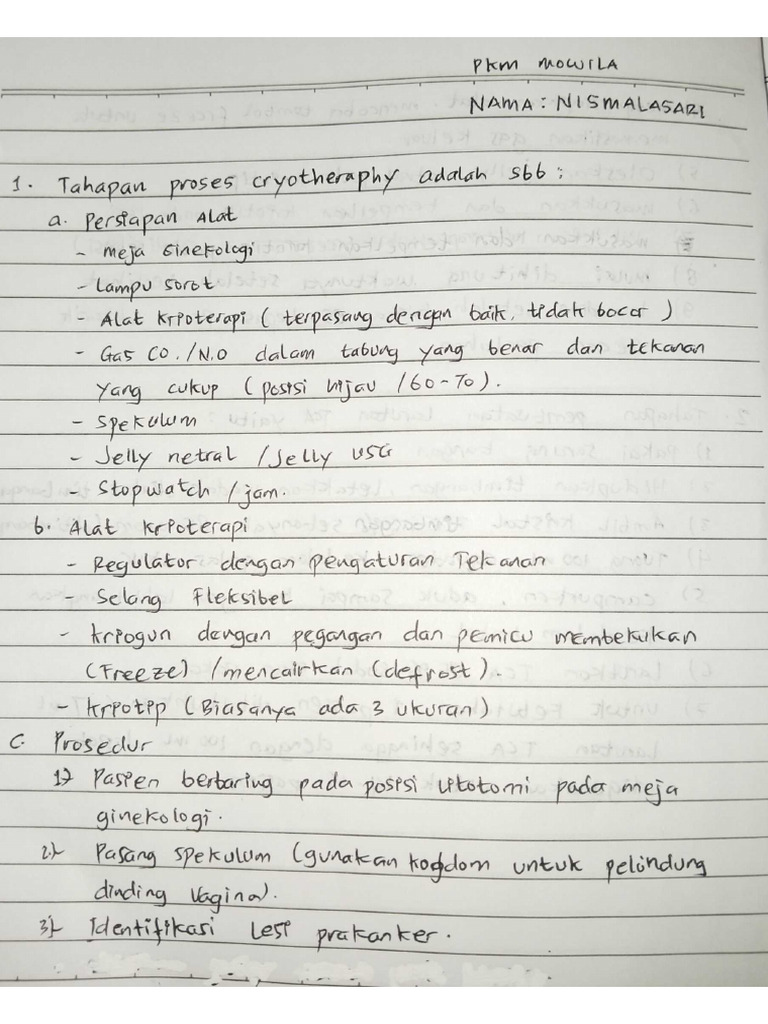 PKM MOWILA
NAMA : NISMALASARI
1. Tahapan proses cryotheraphy adalah sbb :
a. Persiapan Alat
- meja Ginekologi
- Lampu sorot
- Alat Krioterapi ( terpasang dengan baik, tidak bocor )
- Gas CO2/N2O dalam tabung yang benar dan tekanan
yang cukup ( posisi hijau / 60-70 ).
- Spekulum
- Jelly netral / Jelly USG
- Stopwatch / jam.
b. Alat Krioterapi
- Regulator dengan pengaturan Tekanan
- Selang Fleksibel
- Kriogun dengan pegangan dan pemicu membekukan
(Freeze) / mencairkan (defrost).
- Kriotip ( Biasanya ada 3 ukuran )
C. Prosedur
1) Pasien berbaring pada posisi Litotomi pada meja
ginekologi.
2) Pasang spekulum (gunakan kondom untuk pelindung
dinding Vagina).
3) Identifikasi Lesi prakanker.